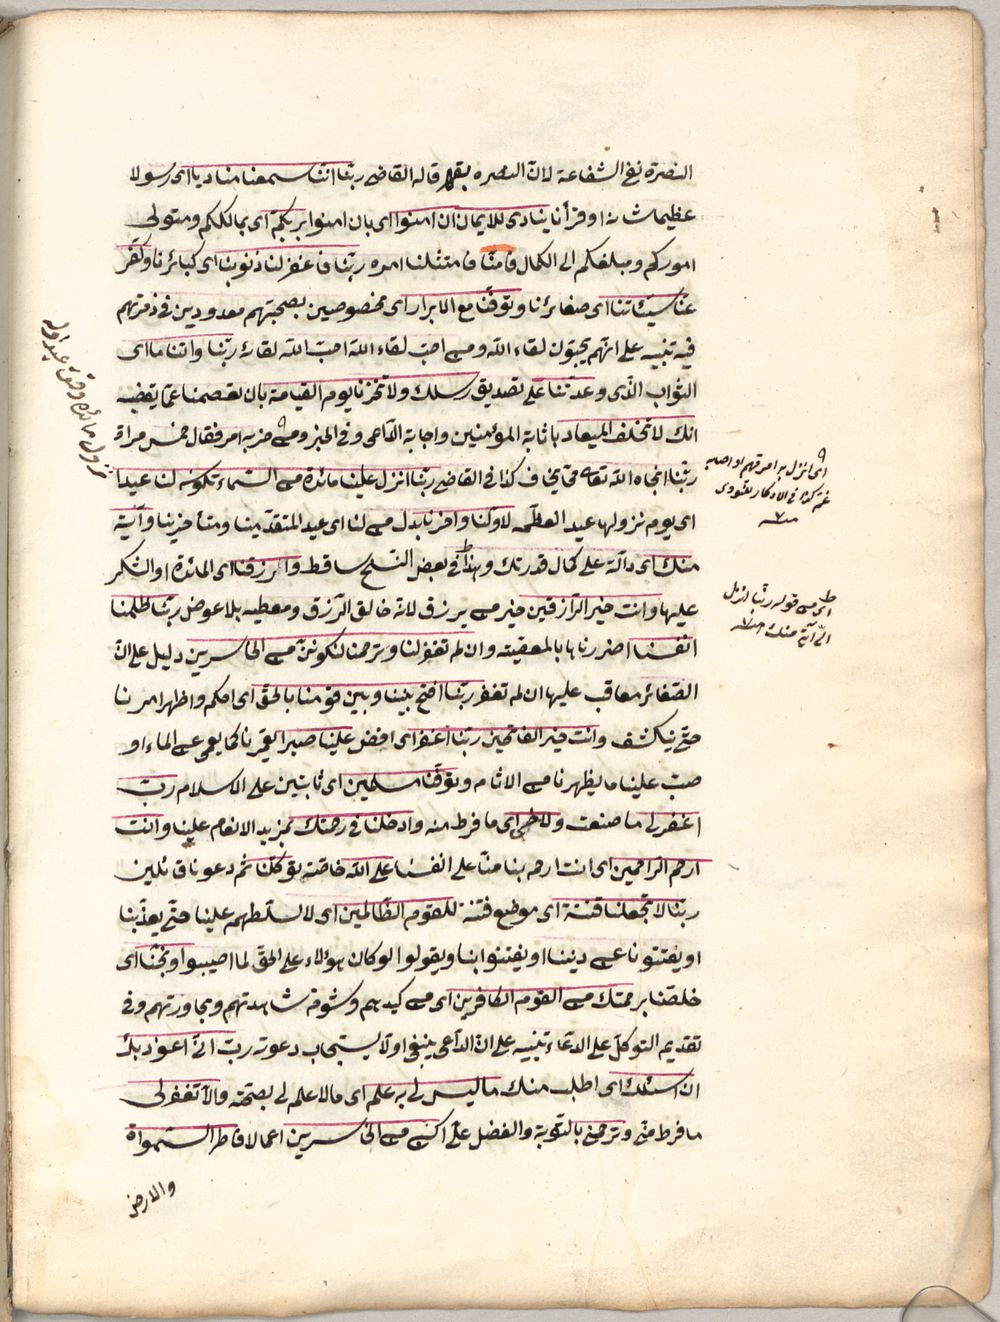 النصرة نفع الشفاعة لان النصرة بقهر قاله القاضى ربنا اننا سمعنا مناديا اى رسولا
عظيما شانه او قرأنا ينادى للايمان ان امنوا اى بان امنوا بربكم اى بمالككم ومتولى
اموركم ومبلغكم الى الكمال فامنا فامتثلنا امره ربنا فاغفر لنا ذنوبنا اى كبائرنا وكفر
عنا سيئاتنا اى صغائرنا وتوفنا مع الابرار اى مخصوصين بصحبتهم معدودين فى زمرتهم
فيه تنبيه على انهم يحبون لقاء الله ومن احب لقاء الله احب الله لقاءه ربنا واتنا ما اى
الثواب الذى وعدتنا على تصديق رسلك ولا تخزنا يوم القيامة بان تعصمنا عما يقضيه
انك لا تخلف الميعاد باثابة المؤمنين واجابة الداعى وفى الخبر ومن حزبه امر فقال خمس مرات
ربنا انجاه الله تعالى مما يخاف كذا فى القاضى ربنا انزل علينا مائدة من السماء تكون لنا عيدا
اى يوم نزولها عيدا نعظمه لاولنا واخرنا بدل من لنا اى عيد المتقدمينا ومتأخرينا وآية
منك اى دالة على كمال قدرتك وهذا فى بعض النسخ ساقط وارزقنا اى المائدة او الشكر
عليها وانت خير الرازقين خير من يرزق لانه خالق الرزق ومعطيه بلا عوض ربنا ظلمنا
انفسنا اضررناها بالمعصية وان لم تغفر لنا وترحمنا لنكونن من الخاسرين دليل على ان
الصغائر معاقب عليها ان لم تغفر ربنا افتح بيننا وبين قومنا بالحق اى احكم واظهر امرنا
حتى ينكشف وانت خير الفاتحين ربنا افرغ اى افض علينا صبرا يغمرنا كما يغمر الماء او
صب علينا ما يطهرنا من الاثام وتوفنا مسلمين اى ثابتين على الاسلام رب
اغفر لى ما صنعت ولاخى اى ما فرط منه وادخلنا فى رحمتك بمزيد الانعام علينا وانت
ارحم الراحمين اى انت ارحم بنا منا على انفسنا على الله خاصة توكلنا ثم دعونا قائلين
ربنا لا تجعلنا فتنة اى موضع فتنة للقوم الظالمين اى لا تسلطهم علينا حتى يعذبنا
او يفتنونا عن ديننا او يفتنوا بنا ويقولوا لو كان هؤلاء على الحق لما اصيبوا ونجنا اى
خلصنا برحمتك من القوم الكافرين اى من كيدهم وشوم مشاهدتهم ومجاورتهم وفى
تقديم التوكل على الدعاء تنبيه على ان الداعى ينبغى اولا يستجاب دعوته رب انى اعوذ بك
ان اسئلك اى اطلب منك ما ليس لى به علم اى ما لا علم لى بصحته والا تغفر لى
ما فرط منى وترحمنى بالتوبة والفضل على اكن من الخاسرين اعمالا فاطر السموات
والارض
اى انزل به امر
من قوله ربنا انزل
الى آية منك
نزول مائدة